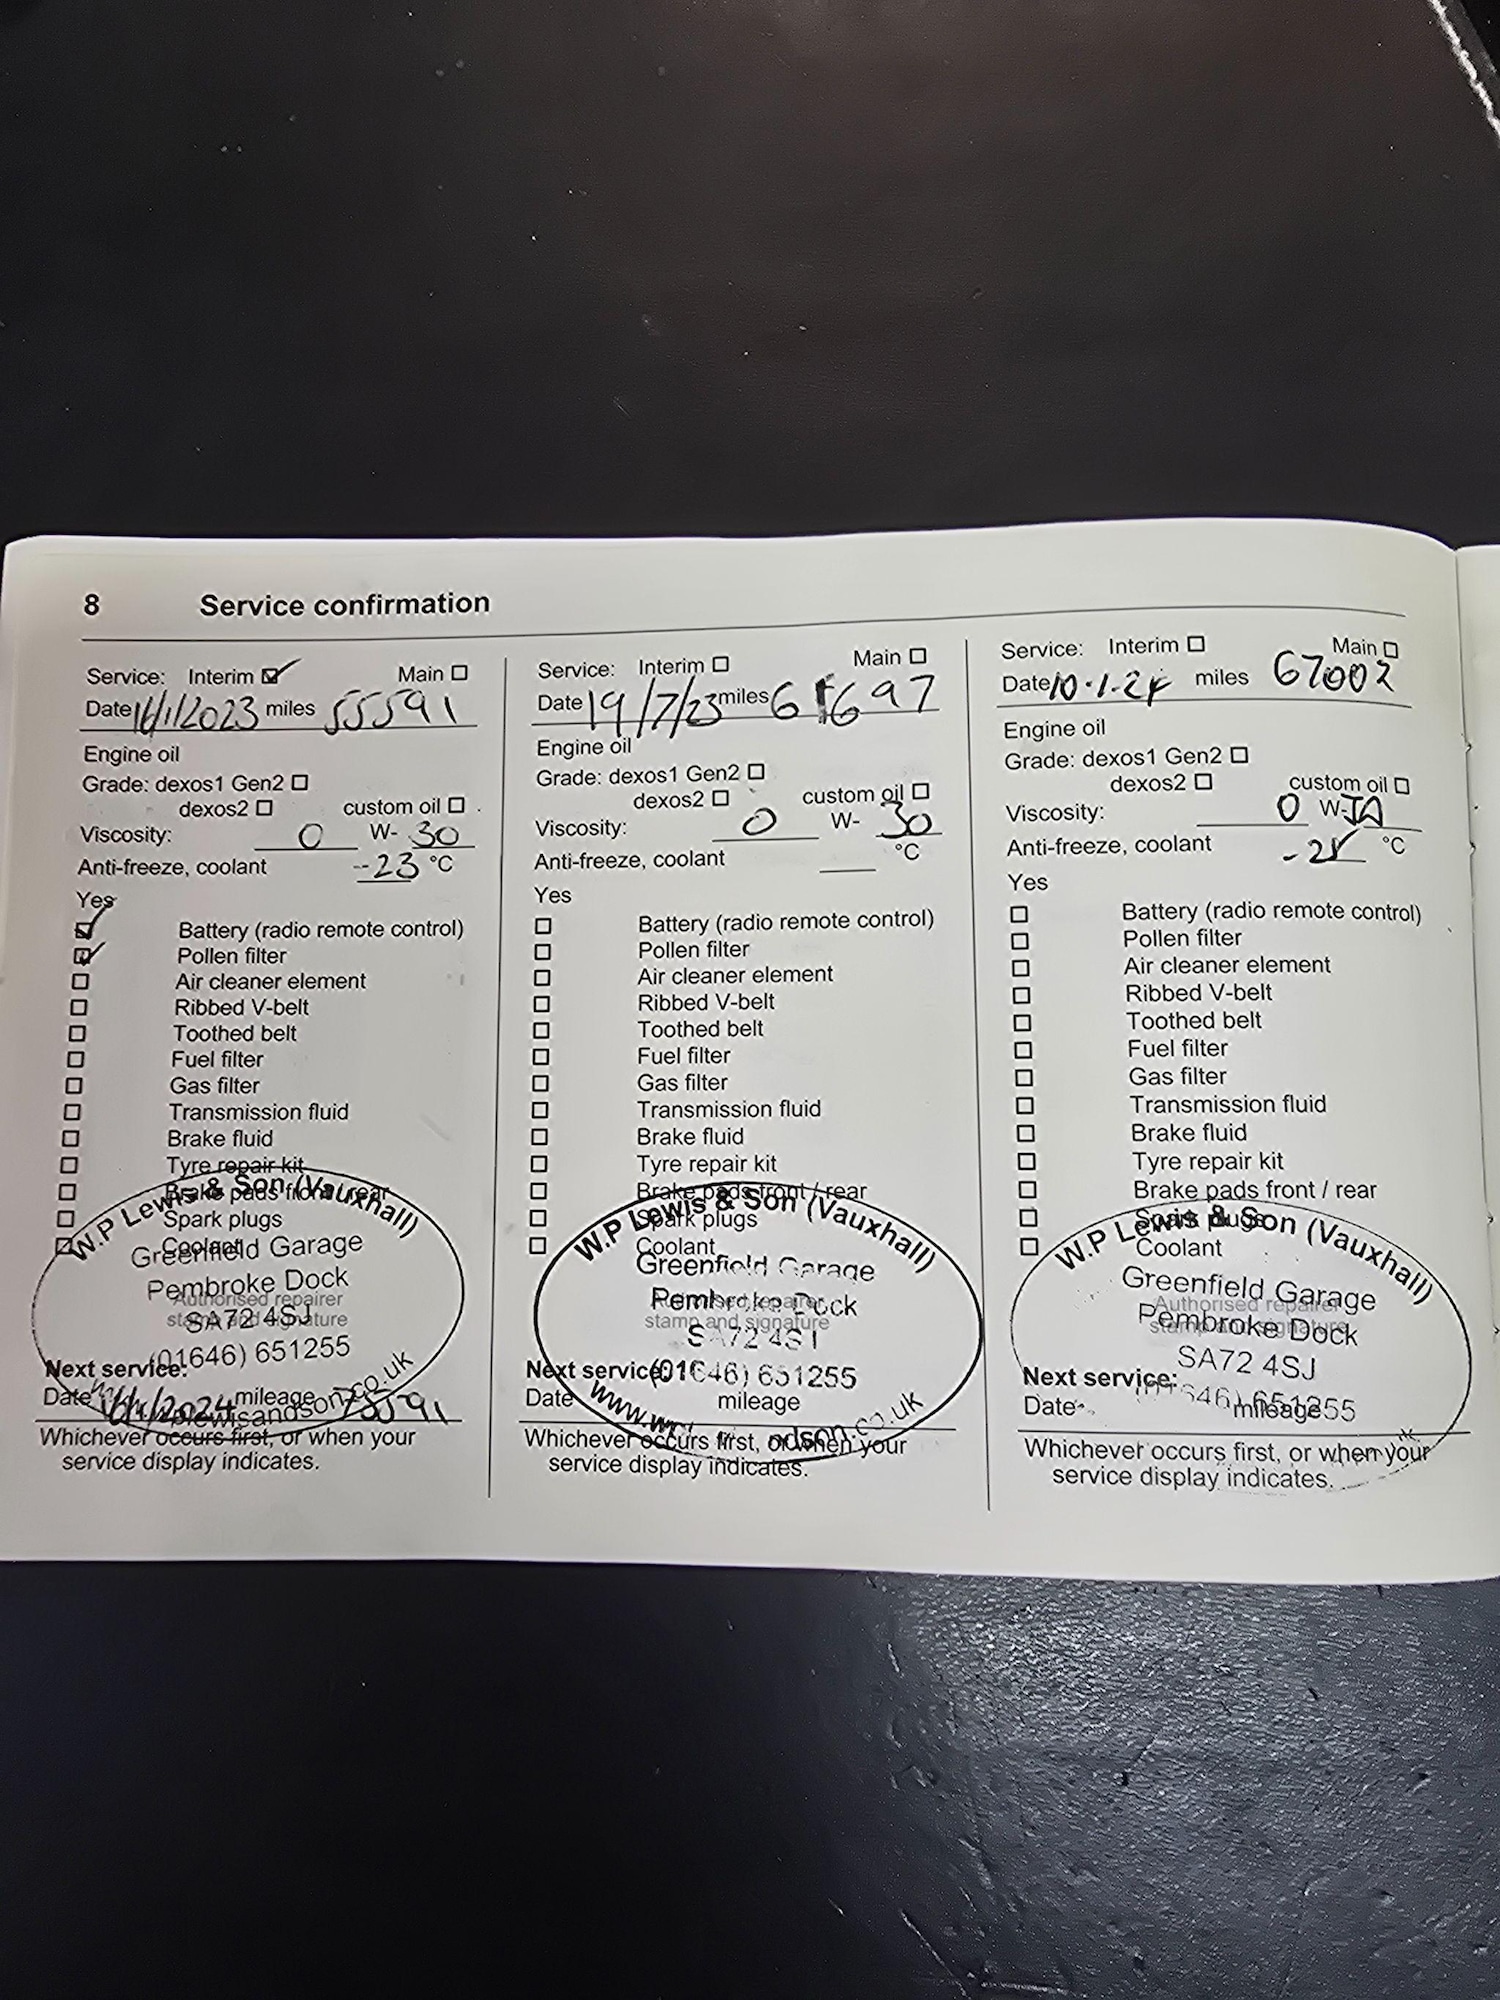 8 Service confirmation
Service: Interim Main
Date 16/1/2023 miles 55591
Engine oil
Grade: dexos1 Gen2
dexos2 custom oil
Viscosity: 0 W- 30
Anti-freeze, coolant -23 °C
Yes
Battery (radio remote control)
Pollen filter
Air cleaner element
Ribbed V-belt
Toothed belt
Fuel filter
Gas filter
Transmission fluid
Brake fluid
Tyre repair kit
Brake pads front / rear
Spark plugs
Coolant
W.P Lewis & Son (Vauxhall)
Greenfield Garage
Pembroke Dock
Authorised repairer
SA72 4SJ
stamp and signature
(01646) 651255
Next service:
Date 2024 mileage 75591
lewisandson.co.uk
Whichever occurs first, or when your
service display indicates.
Service: Interim Main
Date 19/7/23 miles 697
Engine oil
Grade: dexos1 Gen2
dexos2 custom oil
Viscosity: 0 W- 30
Anti-freeze, coolant °C
Yes
Battery (radio remote control)
Pollen filter
Air cleaner element
Ribbed V-belt
Toothed belt
Fuel filter
Gas filter
Transmission fluid
Brake fluid
Tyre repair kit
Brake pads front / rear
Spark plugs
Coolant
W.P Lewis & Son (Vauxhall)
Greenfield Garage
Pembroke Dock
Authorised repairer
stamp and signature
SA72 4SJ
Next service: (01646) 651255
Date mileage
Whichever occurs first, or when your
service display indicates.
Service: Interim Main
Date 10.1.24 miles 67002
Engine oil
Grade: dexos1 Gen2
dexos2 custom oil
Viscosity: 0 W-
Anti-freeze, coolant °C
Yes
Battery (radio remote control)
Pollen filter
Air cleaner element
Ribbed V-belt
Toothed belt
Fuel filter
Gas filter
Transmission fluid
Brake fluid
Tyre repair kit
Brake pads front / rear
Spark plugs
Coolant
W.P Lewis & Son (Vauxhall)
Greenfield Garage
Authorised repairer
Pembroke Dock
stamp and signature
SA72 4SJ
Next service:
(01646) 651255
Date mileage
Whichever occurs first, or when your
service display indicates.